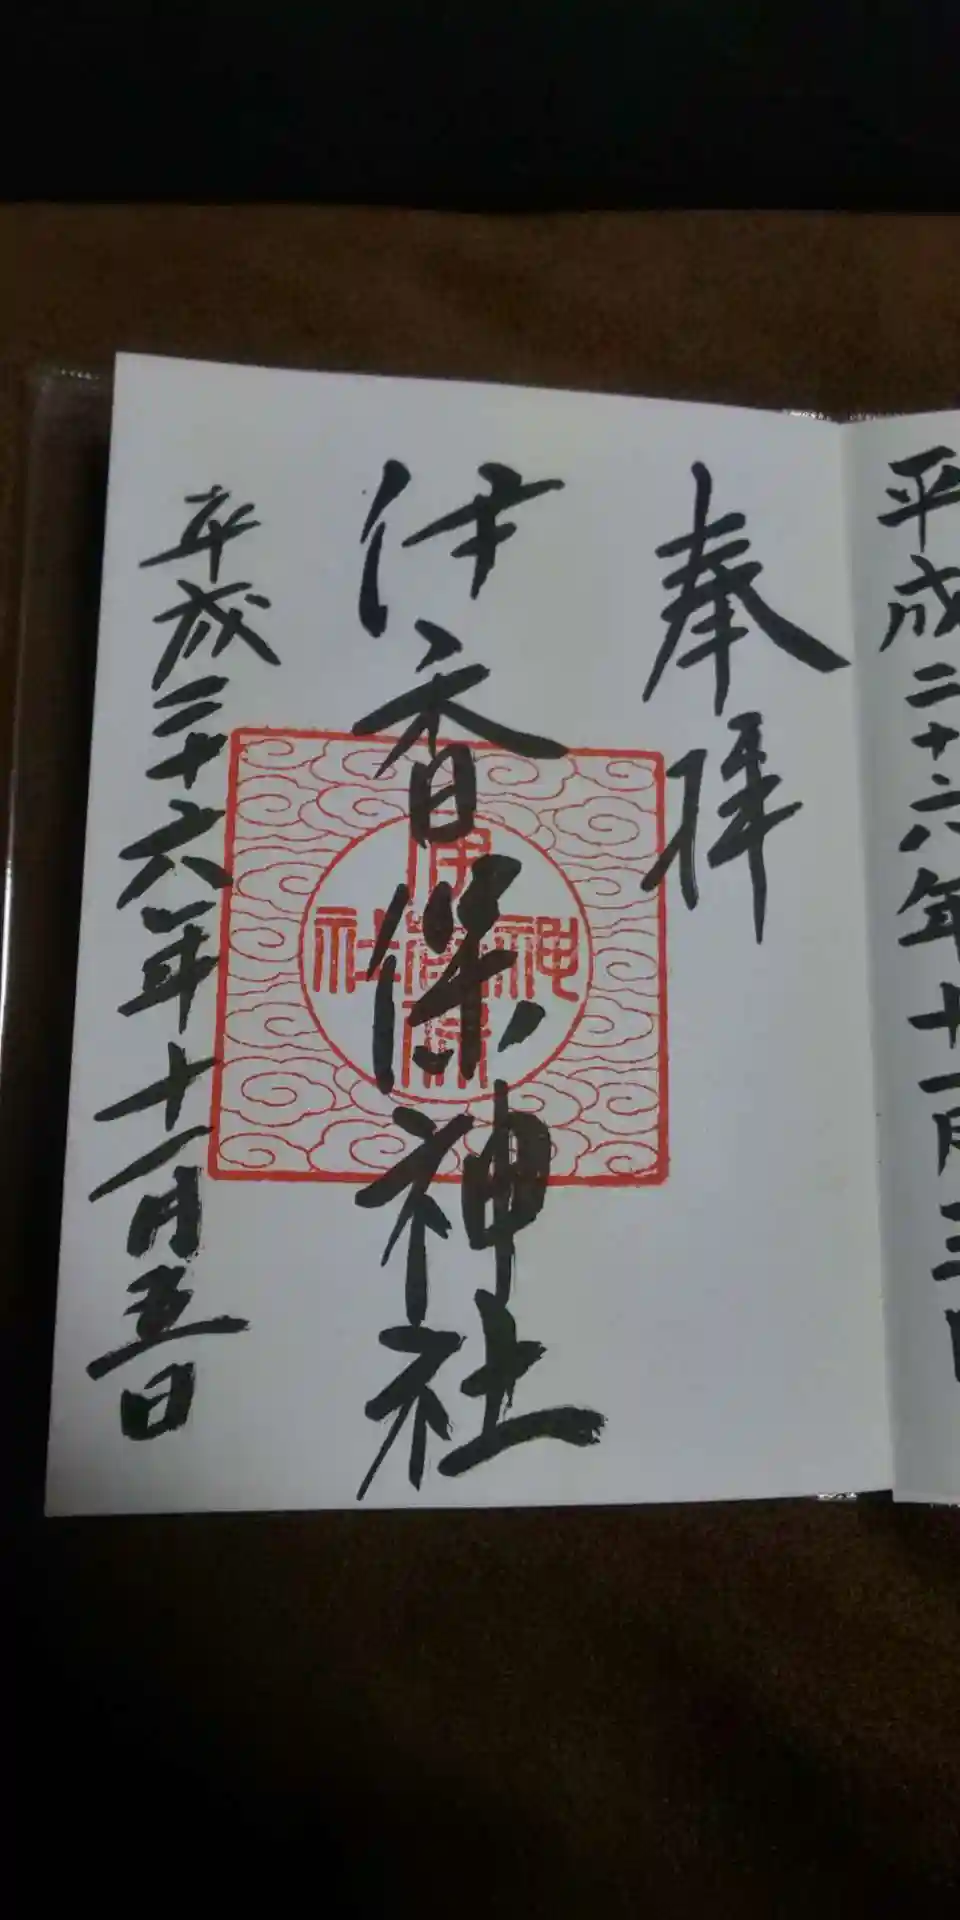 平成二十六年十一月三日
奉拝
伊香保神社
平成二十六年十一月五日
伊香保神社